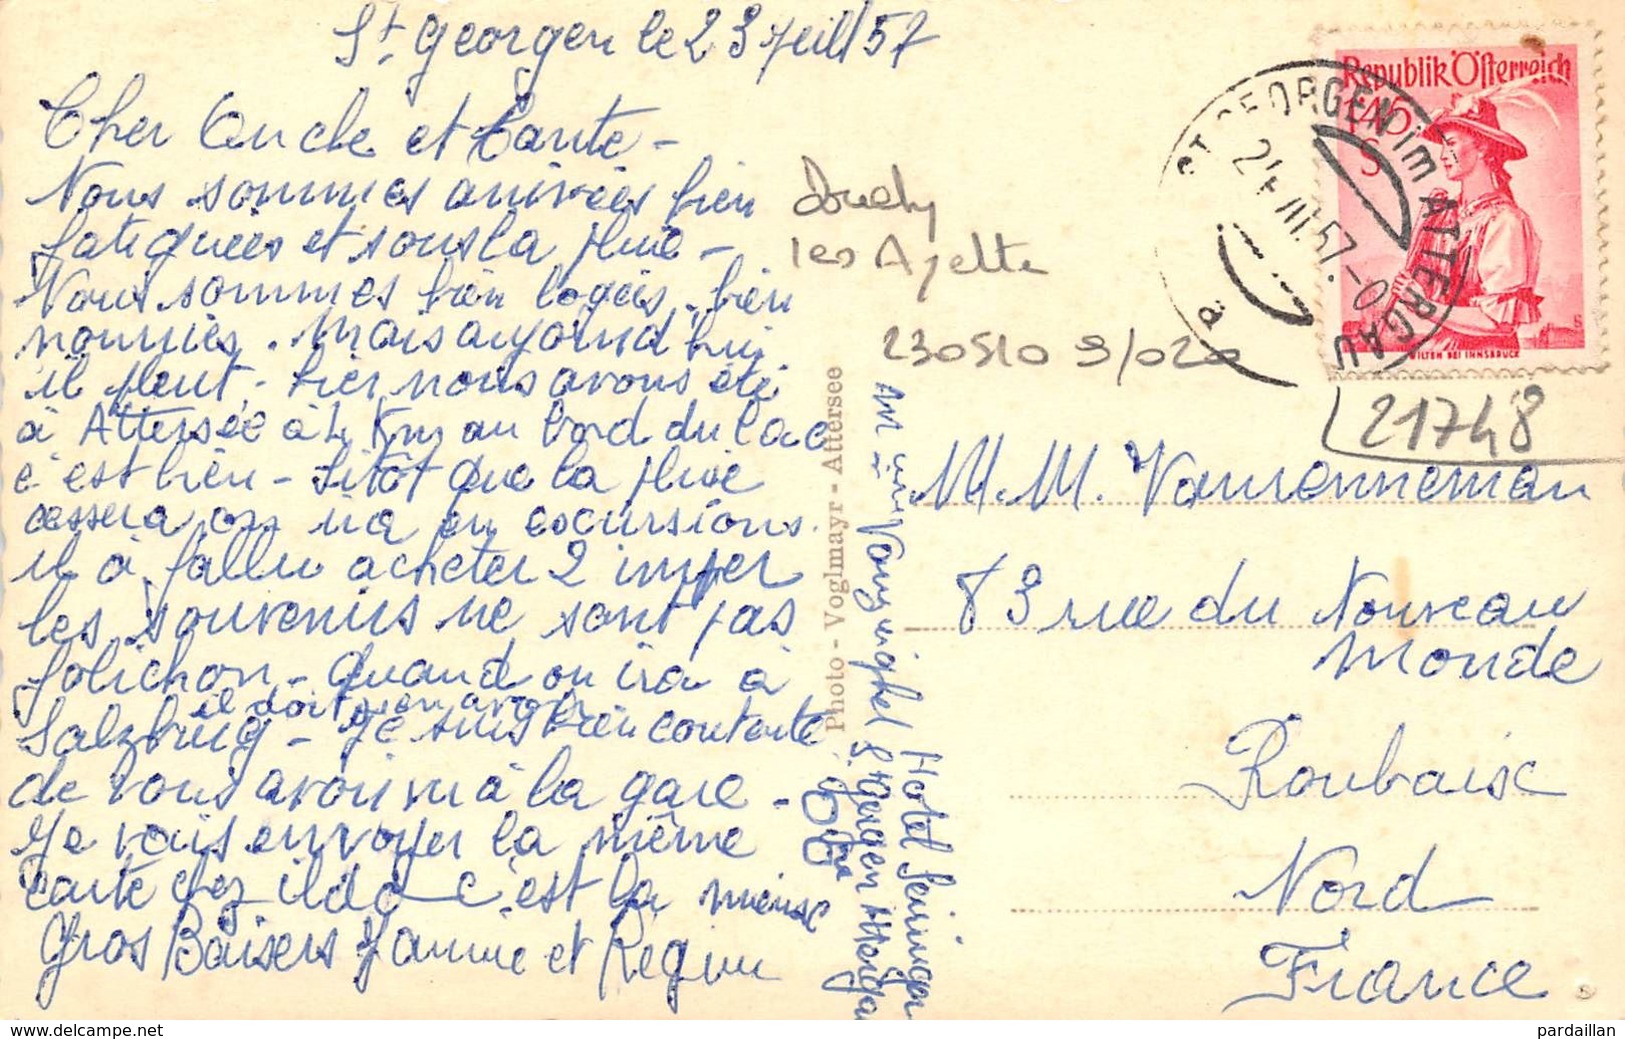 St Georgen le 23 Juill 57
Cher Oncle et Tante -
Nous sommes arrivées bien
fatiguées et sous la pluie -
Nous sommes bien logées, bien
nourries. Mais aujourd'hui
il pleut, hier nous avons été
à Attersée à 4 Km au bord du lac
c'est bien - Sitôt que la pluie
cessera on ira en excursions.
il à fallu acheter 2 imper
les souvenirs ne sont pas
folichon - Quand on ira à
il doit y en avoir
Salzburg - Je suis bien contente
de vous avoir vu à la gare -
Je vais envoyer la même
carte chez ilda c'est la mieux
Gros Baisers Jeanne et Regine
Photo - Voglmayr - Attersee
Hotel Seringer
St Georgen Atterga
les
230510 9/020
ST GEORGEN im ATTERGAU
24. III. 57.-0
a
Republik Österreich
1.45
S
WILTEN BEI INNSBRUCK
21748
M. M. Vanrenneman
83 rue du Nouveau
Monde
Roubaix
Nord
France
www.delcampe.net
pardaillan